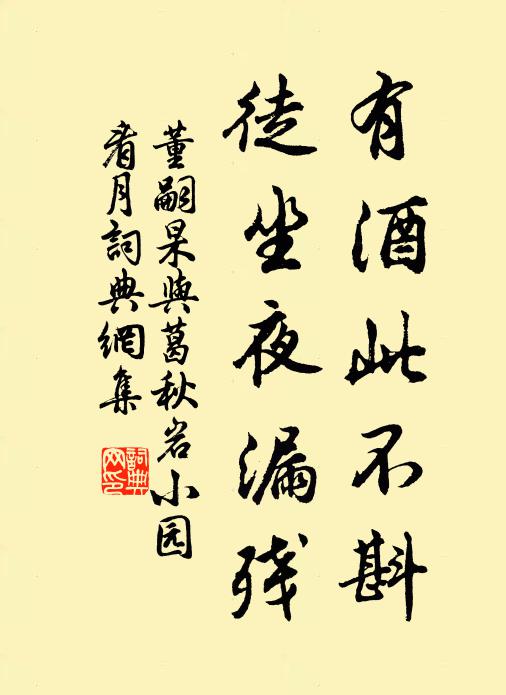 有酒此不斟
徒坐夜漏残
董嗣杲与葛秋岩小园
看月詞典網集
詞典网印